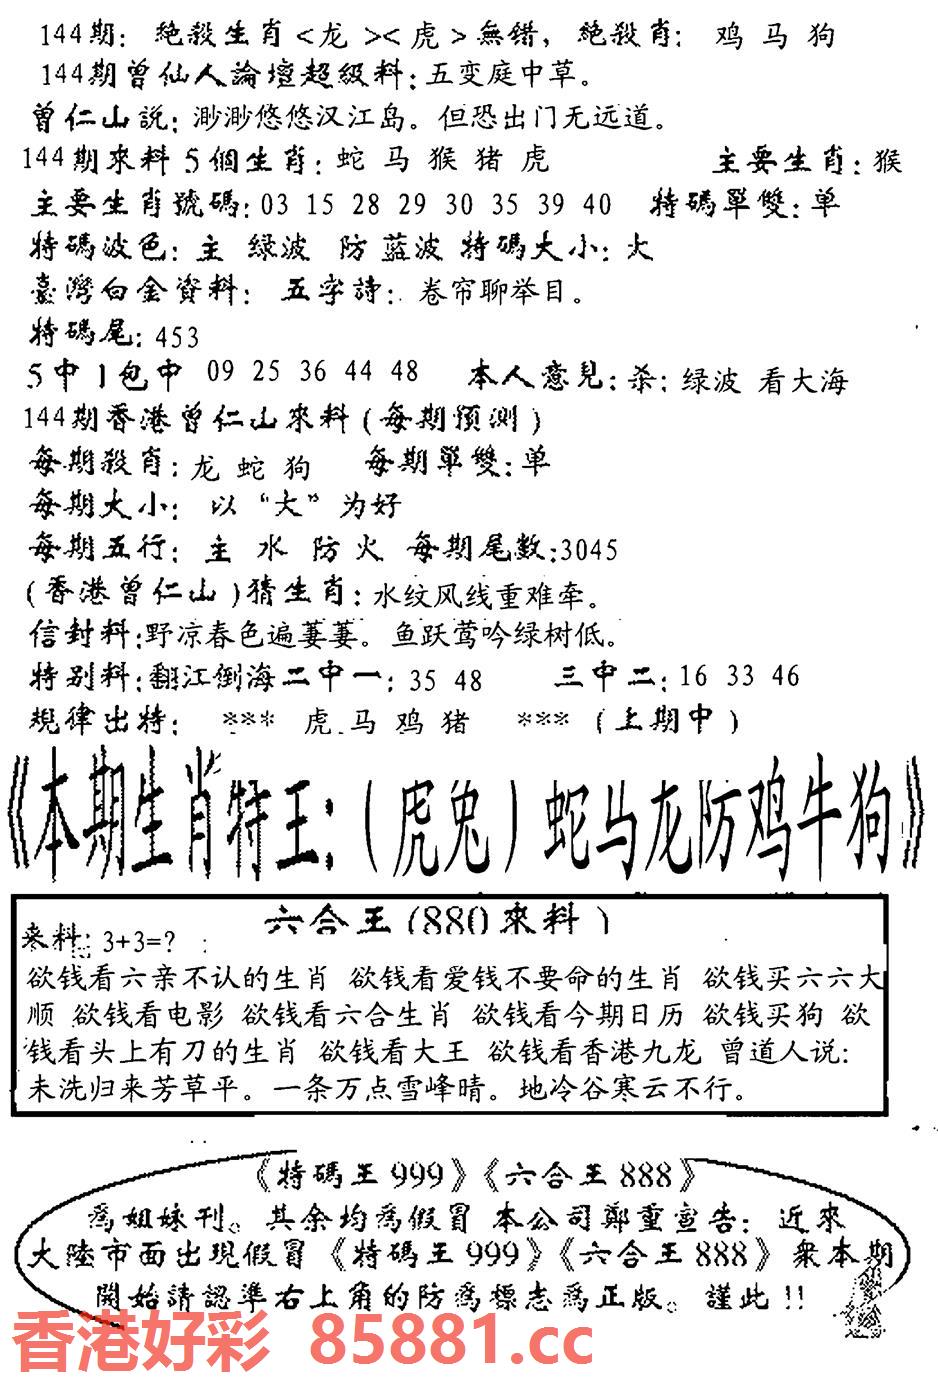 144期：絶殺生肖<龙><虎>無错，絶殺肖：鸡 马 狗
144期曾仙人論壇超級料：五变庭中草。
曾仁山說：渺渺悠悠汉江岛。但恐出门无远道。
144期來料 5 個生肖：蛇 马 猴 猪 虎 主要生肖：猴
主要生肖號碼：03 15 28 29 30 35 39 40 特碼單雙：单
特碼波色：主 绿波 防 蓝波 特碼大小：大
臺灣白金資料： 五字詩：卷帘聊举目。
特碼尾：453
5中1包中 09 25 36 44 48 本人意見：杀：绿波 看大海
144期香港曾仁山來料(每期預测)
每期殺肖：龙 蛇 狗 每期單雙：单
每期大小： 以“大”为好
每期五行： 主 水 防 火 每期尾数：3045
(香港曾仁山)猜生肖：水纹风线重难牵。
信封料：野凉春色遍萋萋。鱼跃莺吟绿树低。
特别料：翻江倒海二中一：35 48 三中二：16 33 46
规律出特： *** 虎 马 鸡 猪 *** (上期中)
《本期生肖特王：(虎兔)蛇马龙防鸡牛狗》
六合王(880來料)
来料：3+3=？：
欲钱看六亲不认的生肖 欲钱看爱钱不要命的生肖 欲钱买六六大
顺 欲钱看电影 欲钱看六合生肖 欲钱看今期日历 欲钱买狗 欲
钱看头上有刀的生肖 欲钱看大王 欲钱看香港九龙 曾道人说：
未洗归来芳草平。一条万点雪峰晴。地冷谷寒云不行。
《特碼王999》《六合王888》
爲姐妹刊。其余均爲假冒 本公司鄭重宣告：近來
大陸市面出現假冒《特碼王999》《六合王888》衆本期
開始請認準右上角的防爲標志爲正版。謹此!!
香港好彩 85881.cc